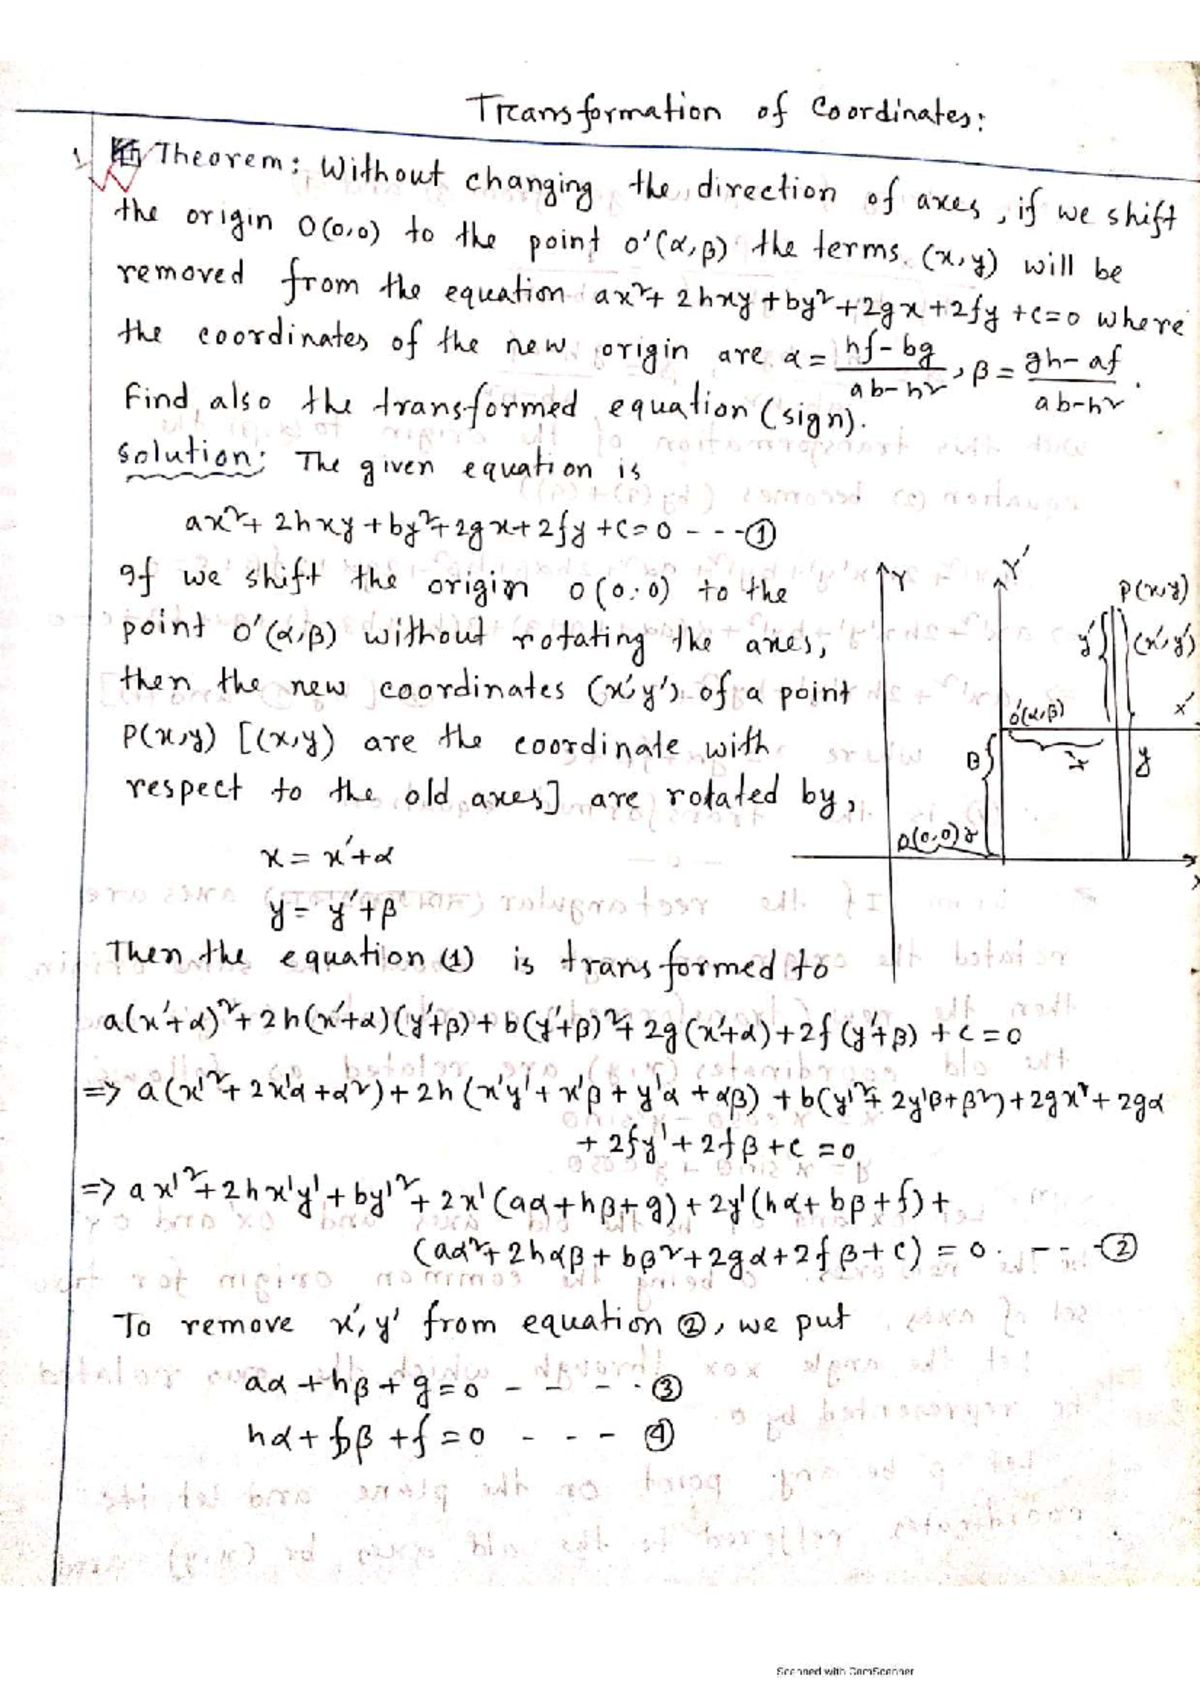 Transformation of Coordinates:
1. Theorem: Without changing the direction of axes, if we shift
the origin O(0,0) to the point O'(α,β) the terms (x,y) will be
removed from the equation ax²+ 2hxy +by²+2gx+2fy +c=0 where
the coordinates of the new origin are α = (hf-bg)/(ab-h²), β = (gh-af)/(ab-h²).
Find also the transformed equation (sign).
Solution: The given equation is
ax²+ 2hxy +by²+2gx+2fy +c=0 - - - ①
If we shift the origin O(0,0) to the
point O'(α,β) without rotating the axes,
then the new coordinates (x',y') of a point
P(x,y) [(x,y) are the coordinate with
respect to the old axes] are rotated by,
x = x'+α
y = y'+β
Y
Y'
P(x,y)
y'
(x',y')
O'(α,β)
X'
β
x'
y
O(0,0) α
X
Then the equation (1) is transformed to
a(x'+α)²+2h(x'+α)(y'+β)+b(y'+β)²+2g(x'+α)+2f(y'+β)+c=0
=> a(x'²+2x'α+α²)+2h(x'y'+x'β+y'α+αβ)+b(y'²+2y'β+β²)+2gx'+2gα
+2fy'+2fβ+c=0
=> ax'²+2hx'y'+by'²+2x'(aα+hβ+g)+2y'(hα+bβ+f)+
(aα²+2hαβ+bβ²+2gα+2fβ+c)=0. - - - ②
To remove x', y' from equation ②, we put
aα+hβ+g=0 - - - - ③
hα+bβ+f=0 - - - ④
Scanned with CamScanner